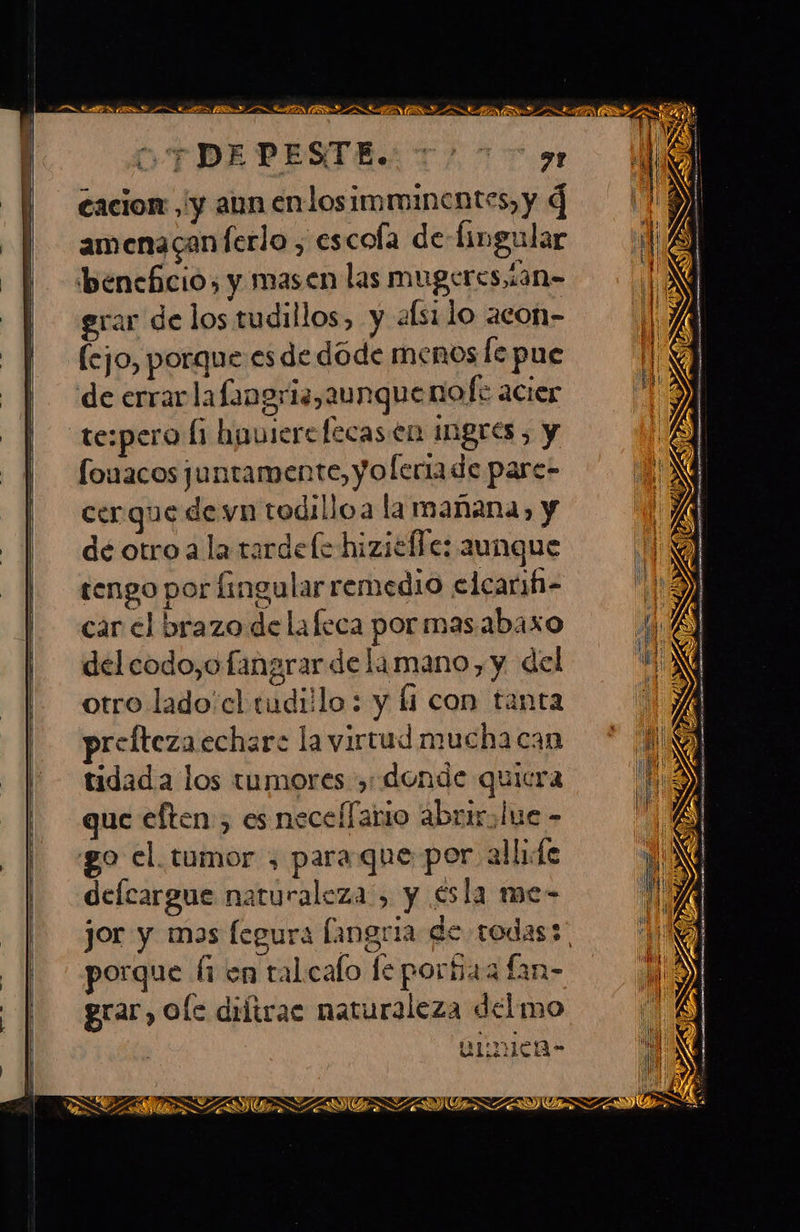 DE PESTE. 91
cacion, y aun en los imminentes, y q̃
amenaçan ſerlo, es coſa de ſingular
beneficio, y mas en las mugeres, ſan-
grar de los tudillos, y aſsi lo acon-
ſejo, porque es de dõde menos ſe pue
de errar la ſangria, aunque no ſe acier
te: pero ſi huuiere ſecas en ingres, y
ſouacos juntamente, yo ſeria de pare-
cer que de vn todillo a la mañana, y
de otro a la tarde ſe hizieſſe: aunque
tengo por ſingular remedio eſcarifi-
car el brazo de la ſeca por mas abaxo
del codo, o ſangrar de la mano, y del
otro lado el tudillo: y ſi con tanta
preſteza echare la virtud mucha can
tidad a los tumores, donde quiera
que eſten, es neceſſario abrir, lue-
go el tumor, para que por alli ſe
deſcargue naturaleza, y es la me-
jor y mas ſegura ſangria de todas:
porque ſi en tal caſo ſe porfia a ſan-
grar, o ſe diſtrae naturaleza del mo
uimien-